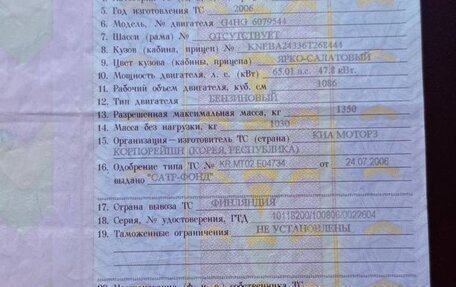 5. Год изготовления ТС 2006
6. Модель, № двигателя G4HG 6079544
7. Шасси (рама) № ОТСУТСТВУЕТ
8. Кузов (кабина, прицеп) № KNEBA24336T268444
9. Цвет кузова (кабины, прицепа) ЯРКО-САЛАТОВЫЙ
10. Мощность двигателя, л. с. (кВт) 65.01 л.с. 47.8 кВт.
11. Рабочий объем двигателя, куб. см 1086
12. Тип двигателя БЕНЗИНОВЫЙ
13. Разрешенная максимальная масса, кг 1350
14. Масса без нагрузки, кг 1030
15. Организация—изготовитель ТС (страна) КИА МОТОРЗ
КОРПОРЕЙШН (КОРЕЯ, РЕСПУБЛИКА)
16. Одобрение типа ТС № KR.MT02.E04734 от 24.07.2006
выдано "САТР-ФОНД"
17. Страна вывоза ТС ФИНЛЯНДИЯ
18. Серия, № удостоверения, ГТД 10118200/100806/0022604
19. Таможенные ограничения НЕ УСТАНОВЛЕНЫ